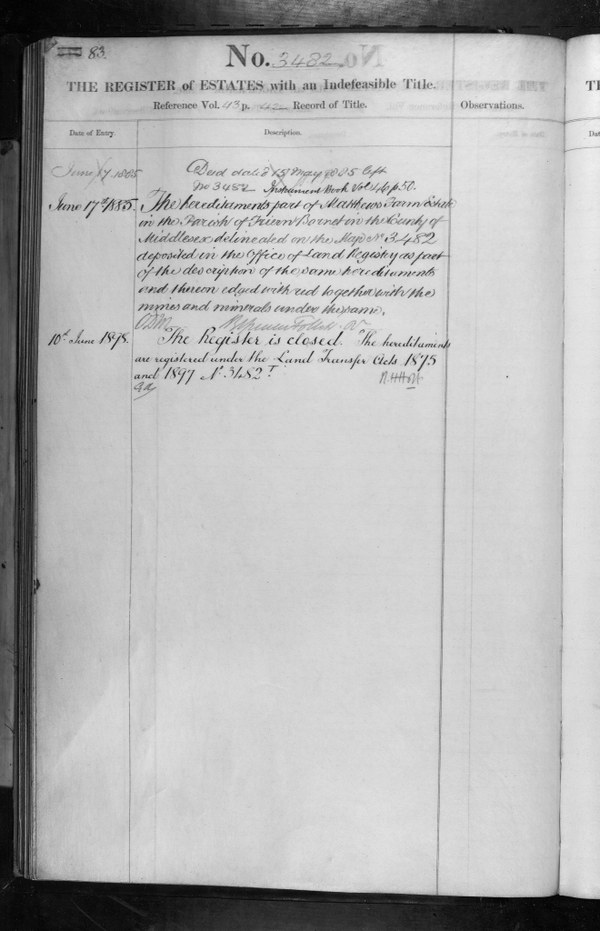 83.
No. 3482
THE REGISTER of ESTATES with an Indefeasible Title.
Reference Vol. 43 p. 42 Record of Title.
Observations.
Date of Entry.
Description.
June 17 1885
Deed dated 15 May 1885 left
No 3482 Instrument Book Vol 4 p. 50.
June 17th 1885.
The hereditaments part of Matthews Farm Estate
in the Parish of Friern Barnet in the County of
Middlesex delineated on the Map No 3482
deposited in the Office of Land Registry as part
of the description of the same hereditaments
and thereon edged with red together with the
mines and minerals under the same.
10th June 1898.
The Register is closed. The hereditaments
are registered under the Land Transfer Acts 1875
and 1897 No 3482T.